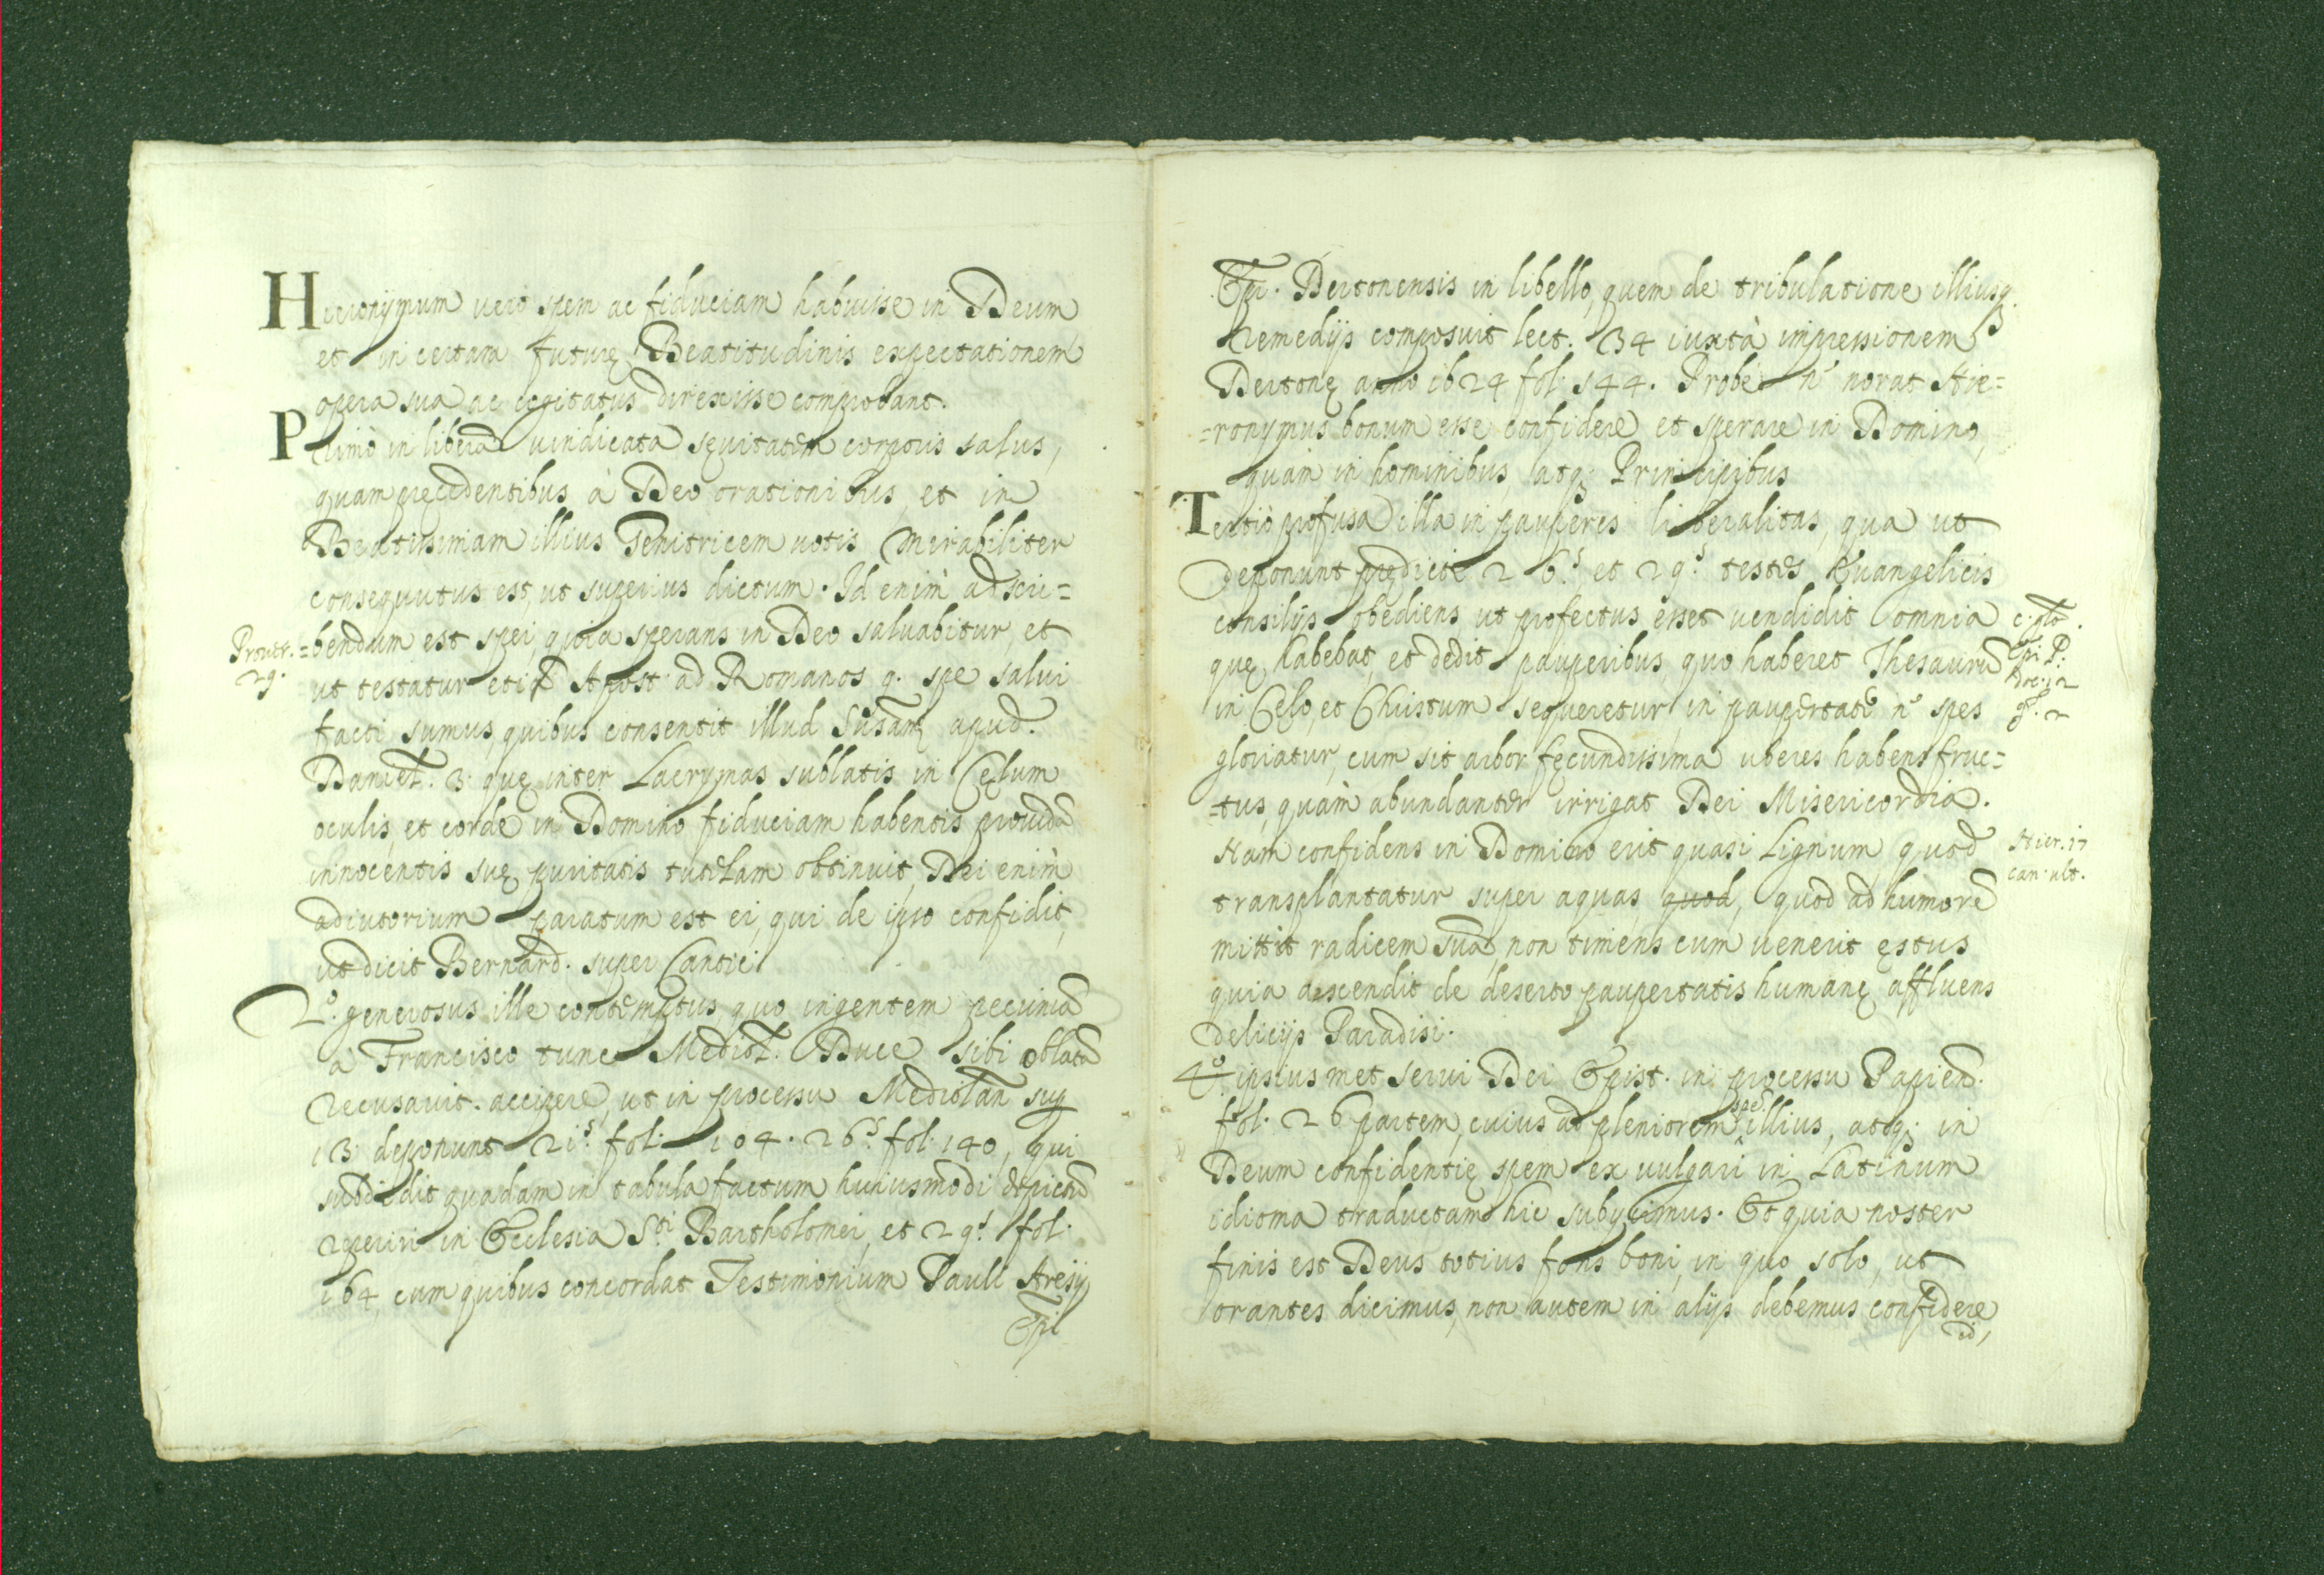 Hieronymum vero spem ac fiduciam habuisse in Deum
et in certam futurę Beatitudinis expectationem
opera sua ac cogitatus direxisse comprobant.
Primò in libera vindicata sęuitatem corporis salus,
quam pręcedentibus à Deo orationibus, et in
Beatissimam illius Genitricem uotis mirabiliter
consequutus est, ut superius dictum. Id enim adscri=
Prouer. =bendum est spei, quia sperans in Deo saluabitur, et
29. ut testatur Apost. ad Romanos 9. spe salui
facti sumus, quibus consentit illud Susanę apud.
Daniel. 3. quę inter Lacrymas sublatis in Cęlum
oculis, et corde in Domino fiduciam habentis
innocentis suę puritatis tutelam obtinuit, Dei enim
adiutorium paratum est ei, qui de ipso confidit,
ut dicit Bernard. super Cantic.
2.º generosus ille contemptus, quo ingentem pecuniã
a Francisco tunc Mediol. Duce sibi oblatã
recusauit. accipere, ut in processu Mediolan sup
13 deponunt 21.s fol. 104. 26.s fol. 140, qui
subdidit quadam in tabula factum huiusmodi depictũ
reperiri in Ecclesia S.ti Bartholomei, et 29.s fol.
164, cum quibus concordat Testimonium Pauli Aresij
Epi
Epi. Dertonensis in libello, quem de tribulatione illiusq.
Remedijs composuit lect. 34 iuxtà impressionem
Dertonę anno 1624 fol. 144. Probe n.º norat Hie=
=ronymus bonum esse confidere et sperare in Domino,
quàm in hominibus, atq; Principibus
Tertiò profusa illa in pauperes liberalitas, qua ut
deponunt prędicti 26.s et 29.s testes Euangelicis
consilijs obediens, ut profectus esset uendidit omnia
quę habebat, et dedit pauperibus, quo haberet Thesaurũ
in Cęlo, et Christum sequeretur, in paupertate n.º spes
gloriatur, cum sit arbor fęcundissima uberes habens fruc=
=tus, quàm abundanter irrigat Dei Misericordia.
Nam confidens in Domino erit quasi Lignum, quod Hier. 17
transplantatur super aquas quod, quod ad humorẽ can. ult.
mittit radicem suã, non timens cum uenerit ęstus
quia ascendit de deserto paupertatis humanę affluens
delicijs Paradisi.
4.º ipsiusmet serui Dei Epist. in processu Papien.
fol. 26 partem, cuius ad pleniorem spei illius, atq; in
Deum confidentię spem ex uulgari in Latinum
idioma traductam hic subijcimus. Et quia noster
finis est Deus totius fons boni, in quo solo, ut
orantes dicimus, non autem in alijs debemus confidere,
id,